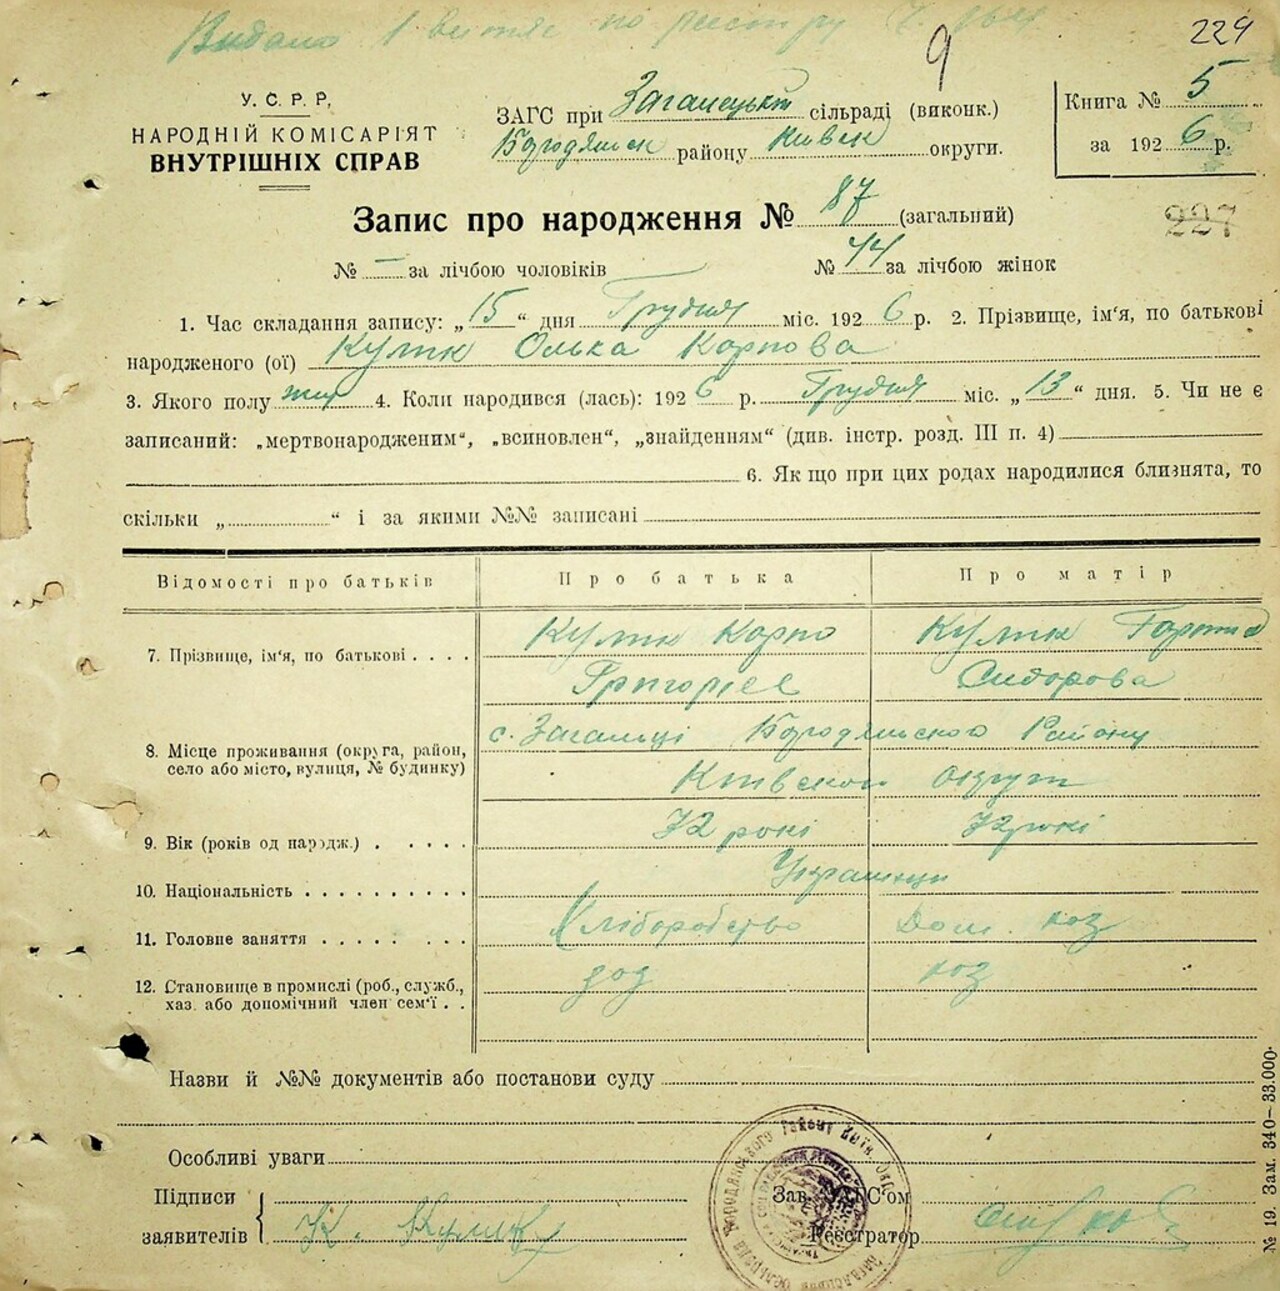 Видано 1 витяг по реєстру
9
229
У. С. Р. Р.
НАРОДНІЙ КОМІСАРІЯТ
ВНУТРІШНІХ СПРАВ
ЗАГС при Загалецькій сільраді (виконк.)
Бородянск району Київск округи.
Книга № 5
за 1926 р.
Запис про народження № 87 (загальний)
227
№ — за лічбою чоловіків
№ 44 за лічбою жінок
1. Час складання запису: „15“ дня Грудня міс. 1926 р. 2. Прізвище, ім'я, по батькові
народженого (ої) Кулик Олька Карпова
3. Якого полу жін 4. Коли народився (лась): 1926 р. Грудня міс. „13“ дня. 5. Чи не є
записаний: „мертвонародженим“, „всиновлен“, „знайденням“ (див. інстр. розд. III п. 4)
6. Як що при цих родах народилися близнята, то
скільки „ “ і за якими №№ записані
Відомості про батьків Про батька Про матір
7. Прізвище, ім'я, по батькові
Кулик Карпо Кулик
Григорієв Сидорова
8. Місце проживання (округа, район,
село або місто, вулиця, № будинку)
с. Загальці Бородянского Району
Київскої округи
9. Вік (років од народж.) 32 рокі 32 рокі
10. Національність Українци
11. Головне заняття Хліборобство Дом. хоз
12. Становище в промислі (роб., служб.,
хаз. або допомічний член сем'ї
хоз
Назви й №№ документів або постанови суду
Особливі уваги
Підписи
заявителів К. Кулик
Зав. ЗАГС'ом
Реєстратор
№ 19. Зам. 340—33.000.